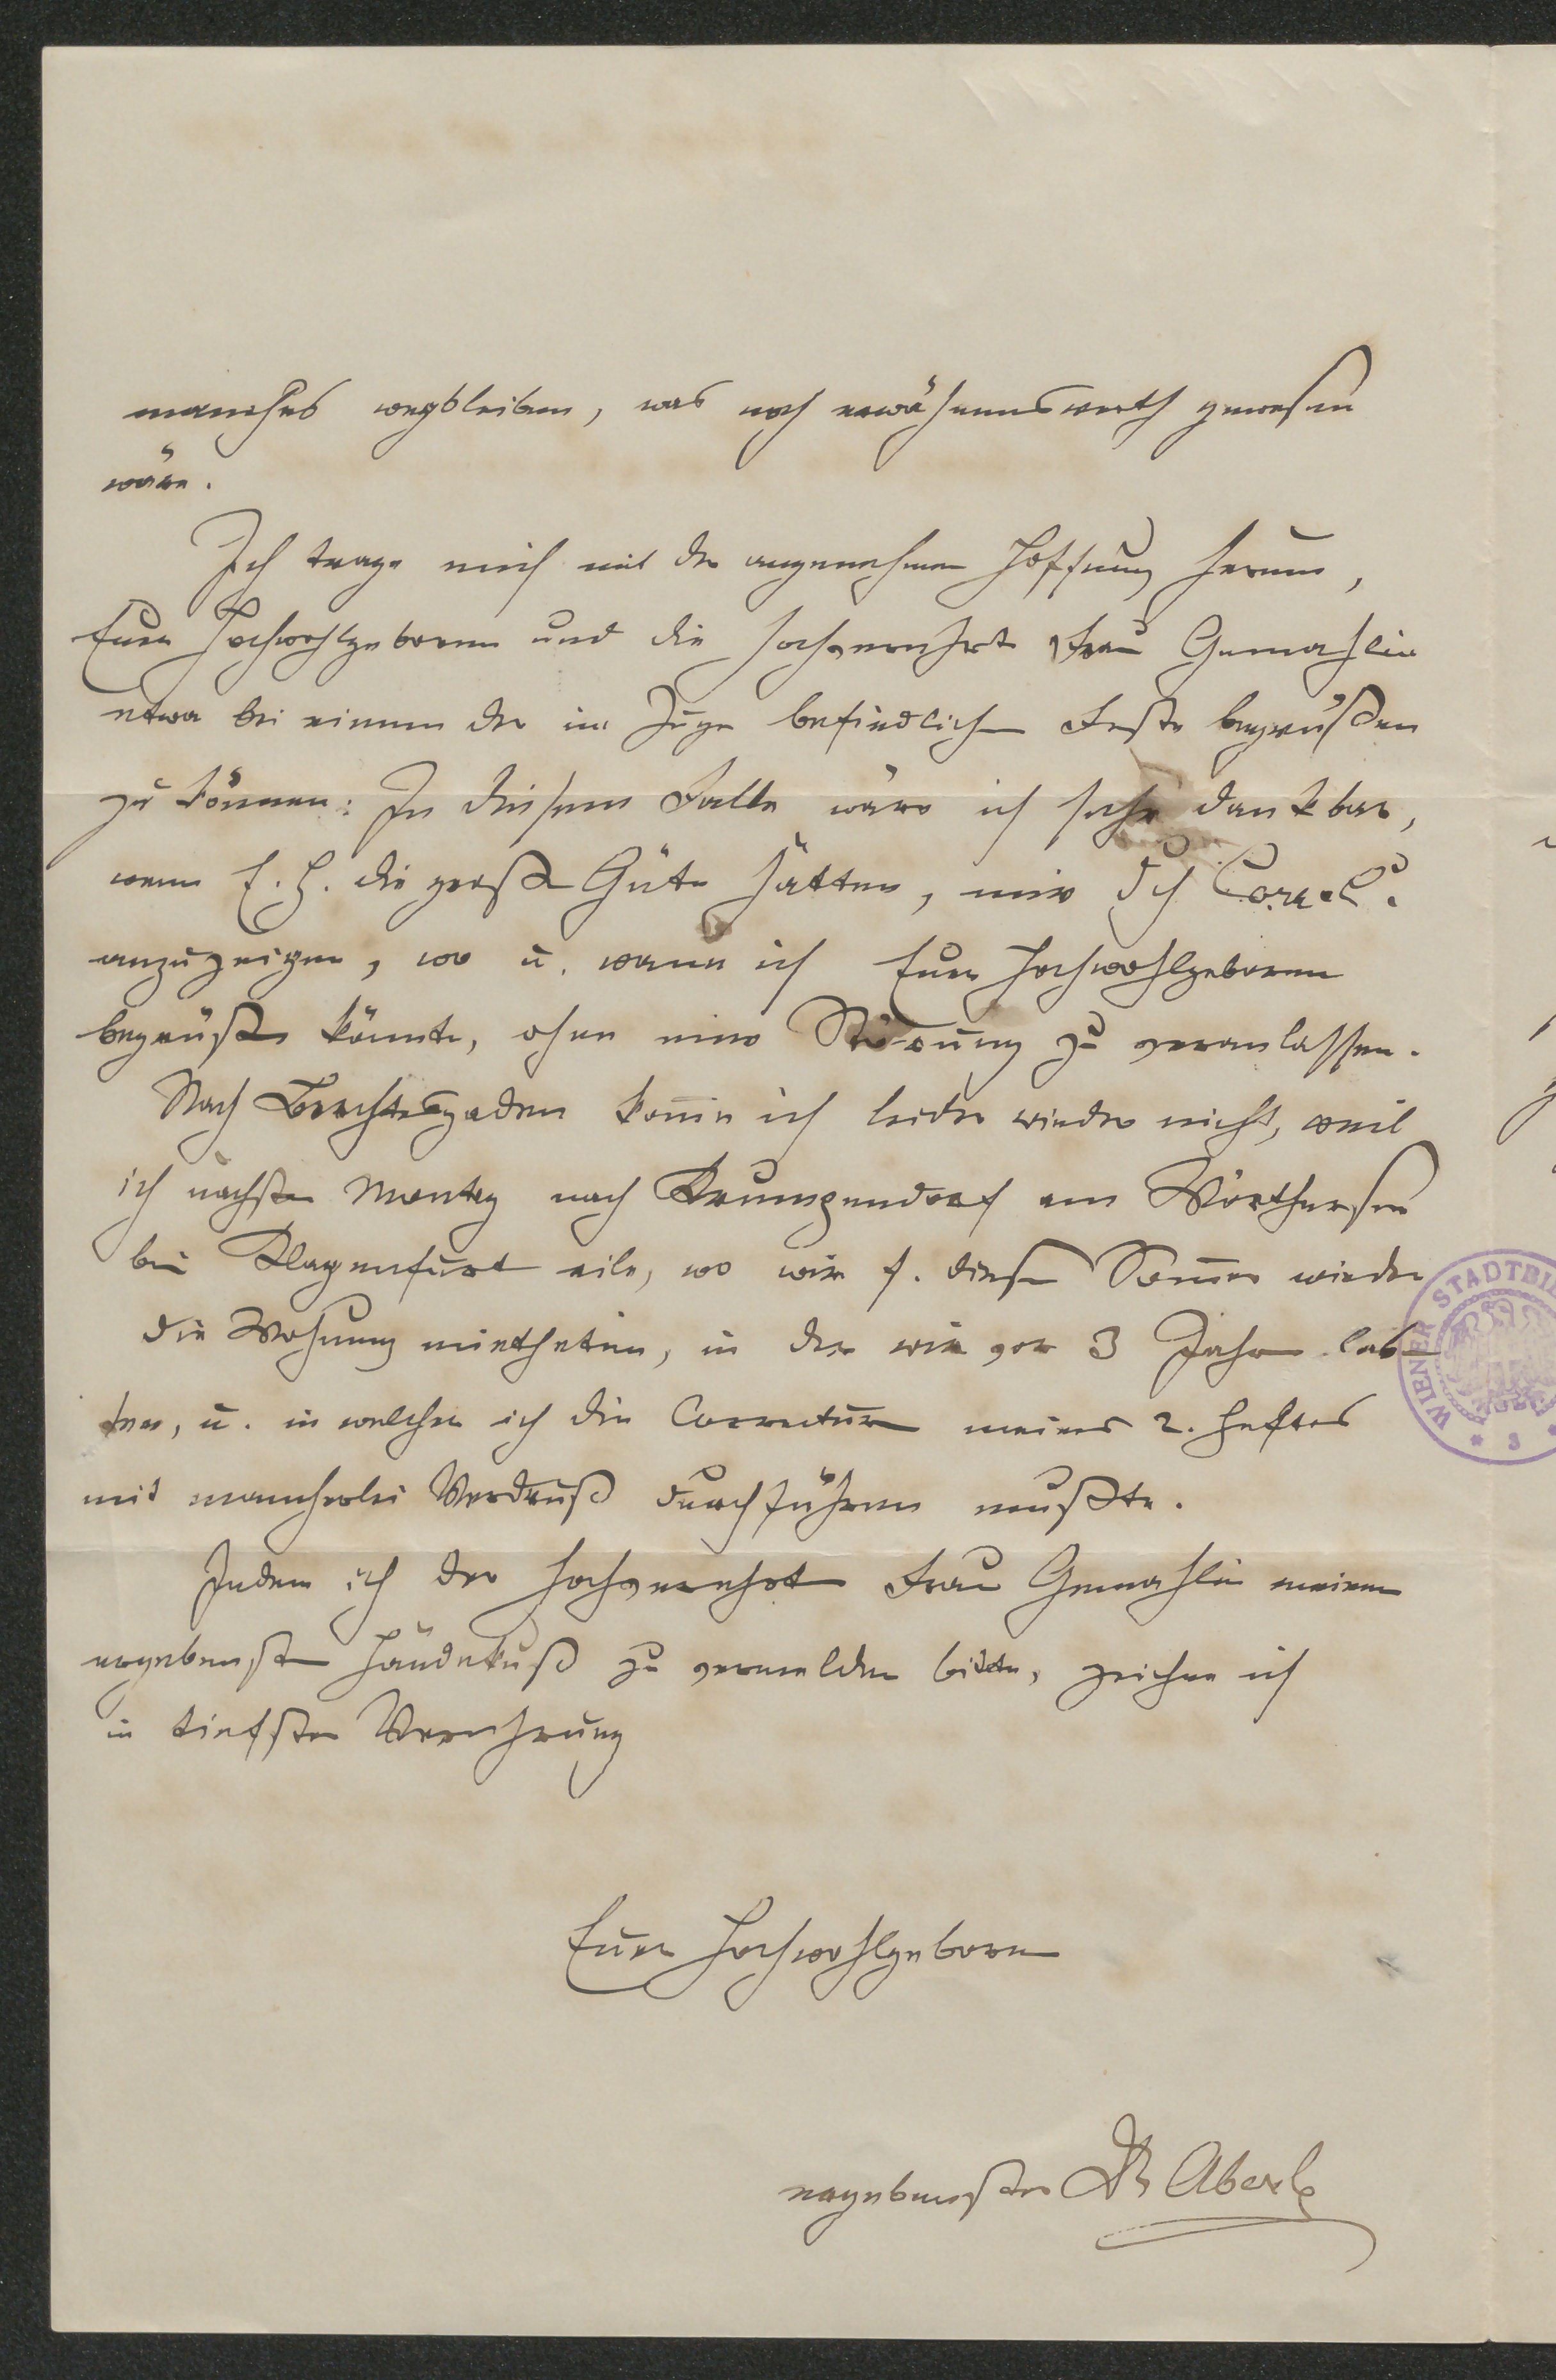 manches wegbleiben, was noch erwähnenswerth gewesen
wäre.
Ich trage mich mit der angenehmen Hoffnung herum,
Euer Hochwohlgeboren und die hochverehrte Frau Gemahlin
etwa bei einem der im Zuge befindlichen Feste begrüßen
zu können: In diesem Falle wäre ich sehr dankbar,
wenn E. H. die große Güte hätten, mir dch Corr.
anzuzeigen, wo u. wann ich Euer Hochwohlgeboren
begrüßen könnte, ohne eine Störung zu veranlassen.
Nach Berchtesgaden kom̄e ich leider wieder nicht, weil
ich nächsten Montag nach Krumpendorf am Wörthersee
bei Klagenfurt eile, wo wir f. diesen Som̄er wieder
die Wohnung mietheten, in der wir vor 3 Jahren leb-
ten, u. in welcher ich die Correctur meines 2. Heftes
mit mancherlei Verdruß durchführen mußte.
Indem ich der hochverehrten Frau Gemahlin meinen
ergebensten Händekuß zu vermelden bitte, zeichne ich
in tiefster Verehrung
Euer Hochwohlgeboren
ergebenster Dr Aberle
WIENER STADTBI
* 3 *